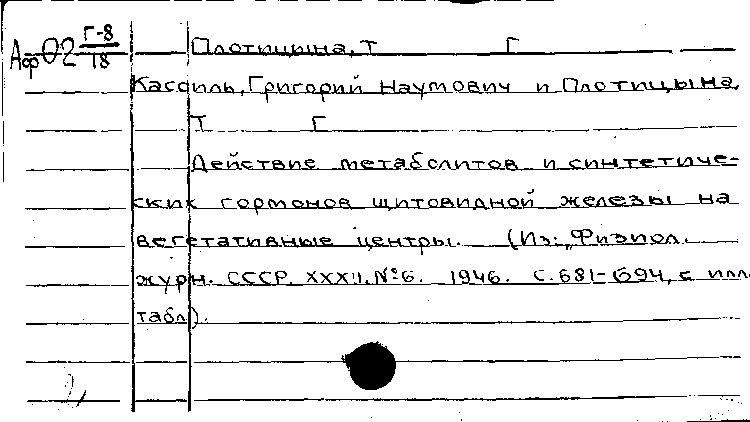 Аф02 Г-8/18 Плотицына, Т Г
Кассиль, Григорий Наумович и Плотицына,
Т Г
Действие метаболитов и синтетиче-
ских гормонов щитовидной железы на
вегетативные центры. (Из: „Физиол.
журн. СССР, XXXII, №6. 1946. С. 681-694, с илл.
табл).